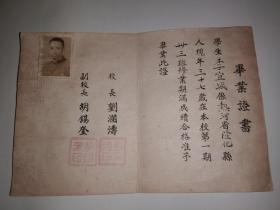 畢業證書
學生王宜城係熱河省隆化縣
人現年三十七歲在本校第一期
卅三班修業期滿成績合格准予
畢業此證
校長劉瀾濤
副校長胡錫奎